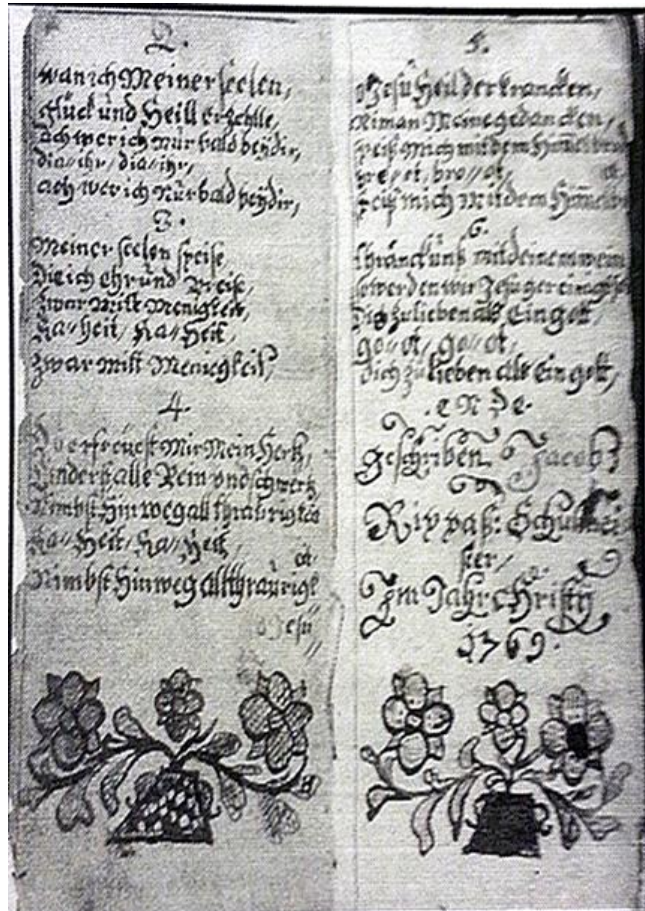 2.
wan ich Meiner seelen,
glück und Heill erzehlle,
ach wer ich Nur bald beÿ dir,
dia〃ihr/dia〃ihr,
ach wer ich Nur bald beÿ dir,
3.
Meiner seelen speise,
Die ich Ehr und Preise,
Zwar mitt Menigkeit,
Ka〃heit/Ka〃Heit,
Zwar mitt Menigkeit,
4.
erfreüest Mir Mein Hertz,
alle Pein und schmertz
Nimbst Hin weg all thraurigkeit
Ka〃Heit/Ka〃Heit,
Nimbst Hin weg all thraürigk
Jesu
5.
Jesu Heil der krancken,
Niman Meine gedancken,
speiß Mich mit dem Himelbro
bro〃ot, bro〃ot,
speiß mich Mit dem Himelbro
6.
thränck unß mit deinem wein
so werden wir Jesu
Dich zu lieben als Ein gott,
go〃ot, go〃ot,
dich zu lieben als Ein gott,
. ENDE.
geschriben Jacob
Rippaß: Schulmei
ster,
Im Jahr Christÿ
1769.